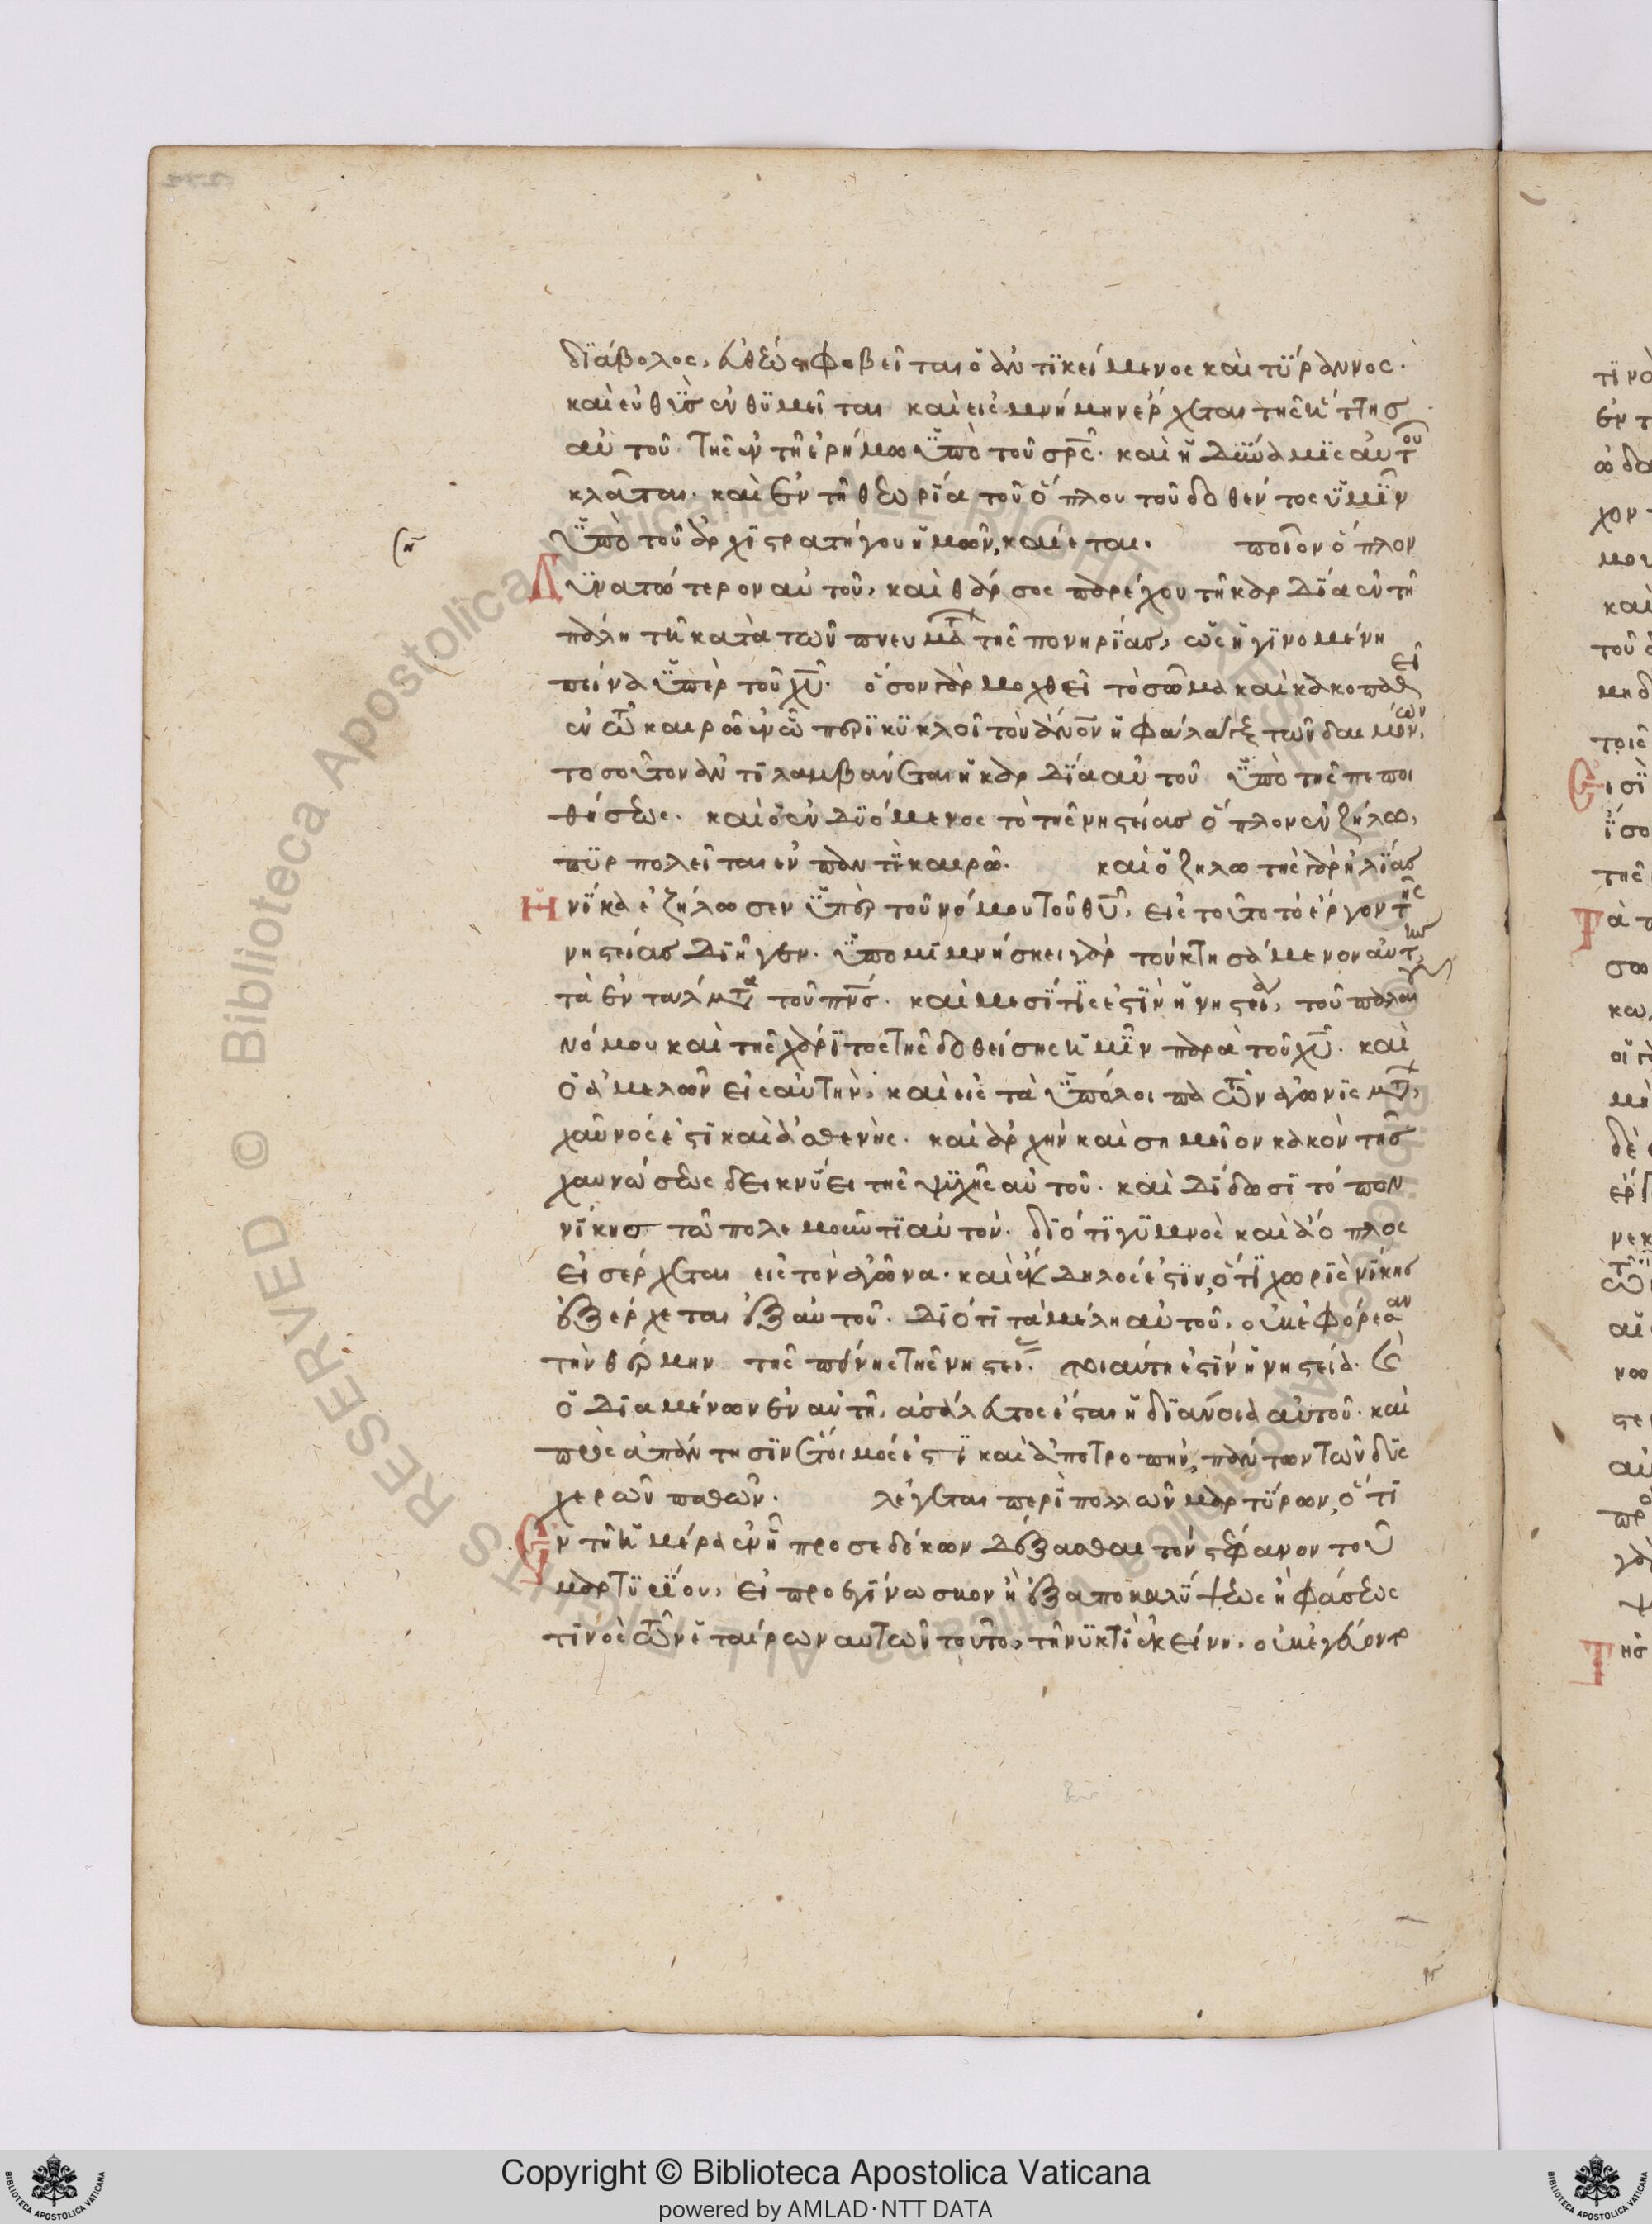 διάβολος, εὐθέως φοβεῖται ὁ ἀντικείμενος καὶ τύραννος.
καὶ εὐθὺς ἐνθυμεῖται καὶ εἰς μνήμην ἔρχεται τῆς ἥττης
αὐτοῦ τῆς ἐν τῇ ἐρήμω ὑπὸ τοῦ σρς. καὶ ἡ δύναμις αὐτοῦ
κλᾶται. καὶ ἐν τῇ θεωρία τοῦ ὅπλου τοῦ δοθέντος ὑμῖν
ὑπὸ τοῦ ἀρχιστρατήγου ἡμῶν, καίεται. ποῖον ὅπλον
Δυνατώτερον αὐτοῦ, καὶ θάρσος παρέχον τῇ καρδία ἐν τῇ
πάλη τῇ κατὰ τῶν πνευμάτ τῆς πονηρίας, ὡς ἡ γινομένη
πείνα ὑπὲρ τοῦ χυ. ὅσον γὰρ μοχθεῖ τὸ σῶμα καὶ κακοπαθεῖ
ἐν τῶ καιρῶ ἐν ὧ περικυκλοῖ τὸν ἄνον ἡ φάλαγξ τῶν δαιμόνων,
τοσοῦτον ἀντιλαμβάνεται ἡ καρδία αὐτοῦ ὑπὸ τῆς πεποι
θήσεως. καὶ ὁ ἐνδυόμενος τὸ τῆς νηστείας ὅπλον ἐν ζήλω,
πυρπολεῖται ἐν παντὶ καιρῶ. καὶ ὁ ζηλωτὴς γὰρ ἠλίας
Ηνίκα ἐζήλωσεν ὑπὲρ τοῦ νόμου τοῦ θυ, εἰς τοῦτο τὸ ἔργον τῆς
νηστείας διῆγεν. ὑπομιμνήσκει γὰρ τοὺ κτησάμενον αὐτὴν,
τὰ ἐντάλματα τοῦ πνς. καὶ μεσίτις ἐστὶν ἡ νηστεία, τοῦ παλαιοῦ
νόμου καὶ τῆς χάριτος τῆς δοθείσης ἡμῖν παρὰ τοῦ χυ. καὶ
ὁ ἀμελῶν εἰς αὐτὴν, καὶ εἰς τὰ ὑπόλοιπα τῶν ἀγωνισμάτ,
χαῦνός ἐστι καὶ ἀσθενὴς. καὶ ἀρχὴν καὶ σημεῖον κακὸν τῆς
χαυνώσεως δεικνύει τῆς ψυχῆς αὐτοῦ. καὶ δίδωσι τόπον
νίκης τῶ πολεμοῦντι αὐτὸν. διότι γυμνὸς καὶ ἄοπλος
εἰσέρχεται εἰς τὸν ἀγῶνα. καὶ ἔκδηλός ἐστιν, ὅτι χωρὶς νίκης
ἐξέρχεται ἐξ αὐτοῦ. διότι τὰ μέλη αὐτοῦ, οὐκ ἐφόρεσαν
τὴν θέρμην τῆς πείνης τῆς νηστεί. τοιαύτη ἐστὶν ἡ νηστεία. καὶ
ὁ διαμένων ἐν αὐτῇ, ἀσάλευτος ἔσται ἡ διάνοια αὐτοῦ. καὶ
πρὸς ἀπάντησιν ἕτοιμός ἐστι καὶ ἀποτροπὴν, πάντων τῶν δυς
χερῶν παθῶν. λέγεται περὶ πολλῶν μαρτύρων, ὅτι
Ἐν τῇ ἡμέρα ἐν ἧ προσεδόκων δέξασθαι τὸν στέφανον τοῦ
μαρτυρίου, εἰ προεγίνωσκον ἢ ἐξ αποκαλύψεως ἢ φάσεως
τινὸς τῶν ἑταίρων αυτῶν τοῦτο, τῇ νυκτὶ ἐκείνη, οὐκ ἐγεύοντο